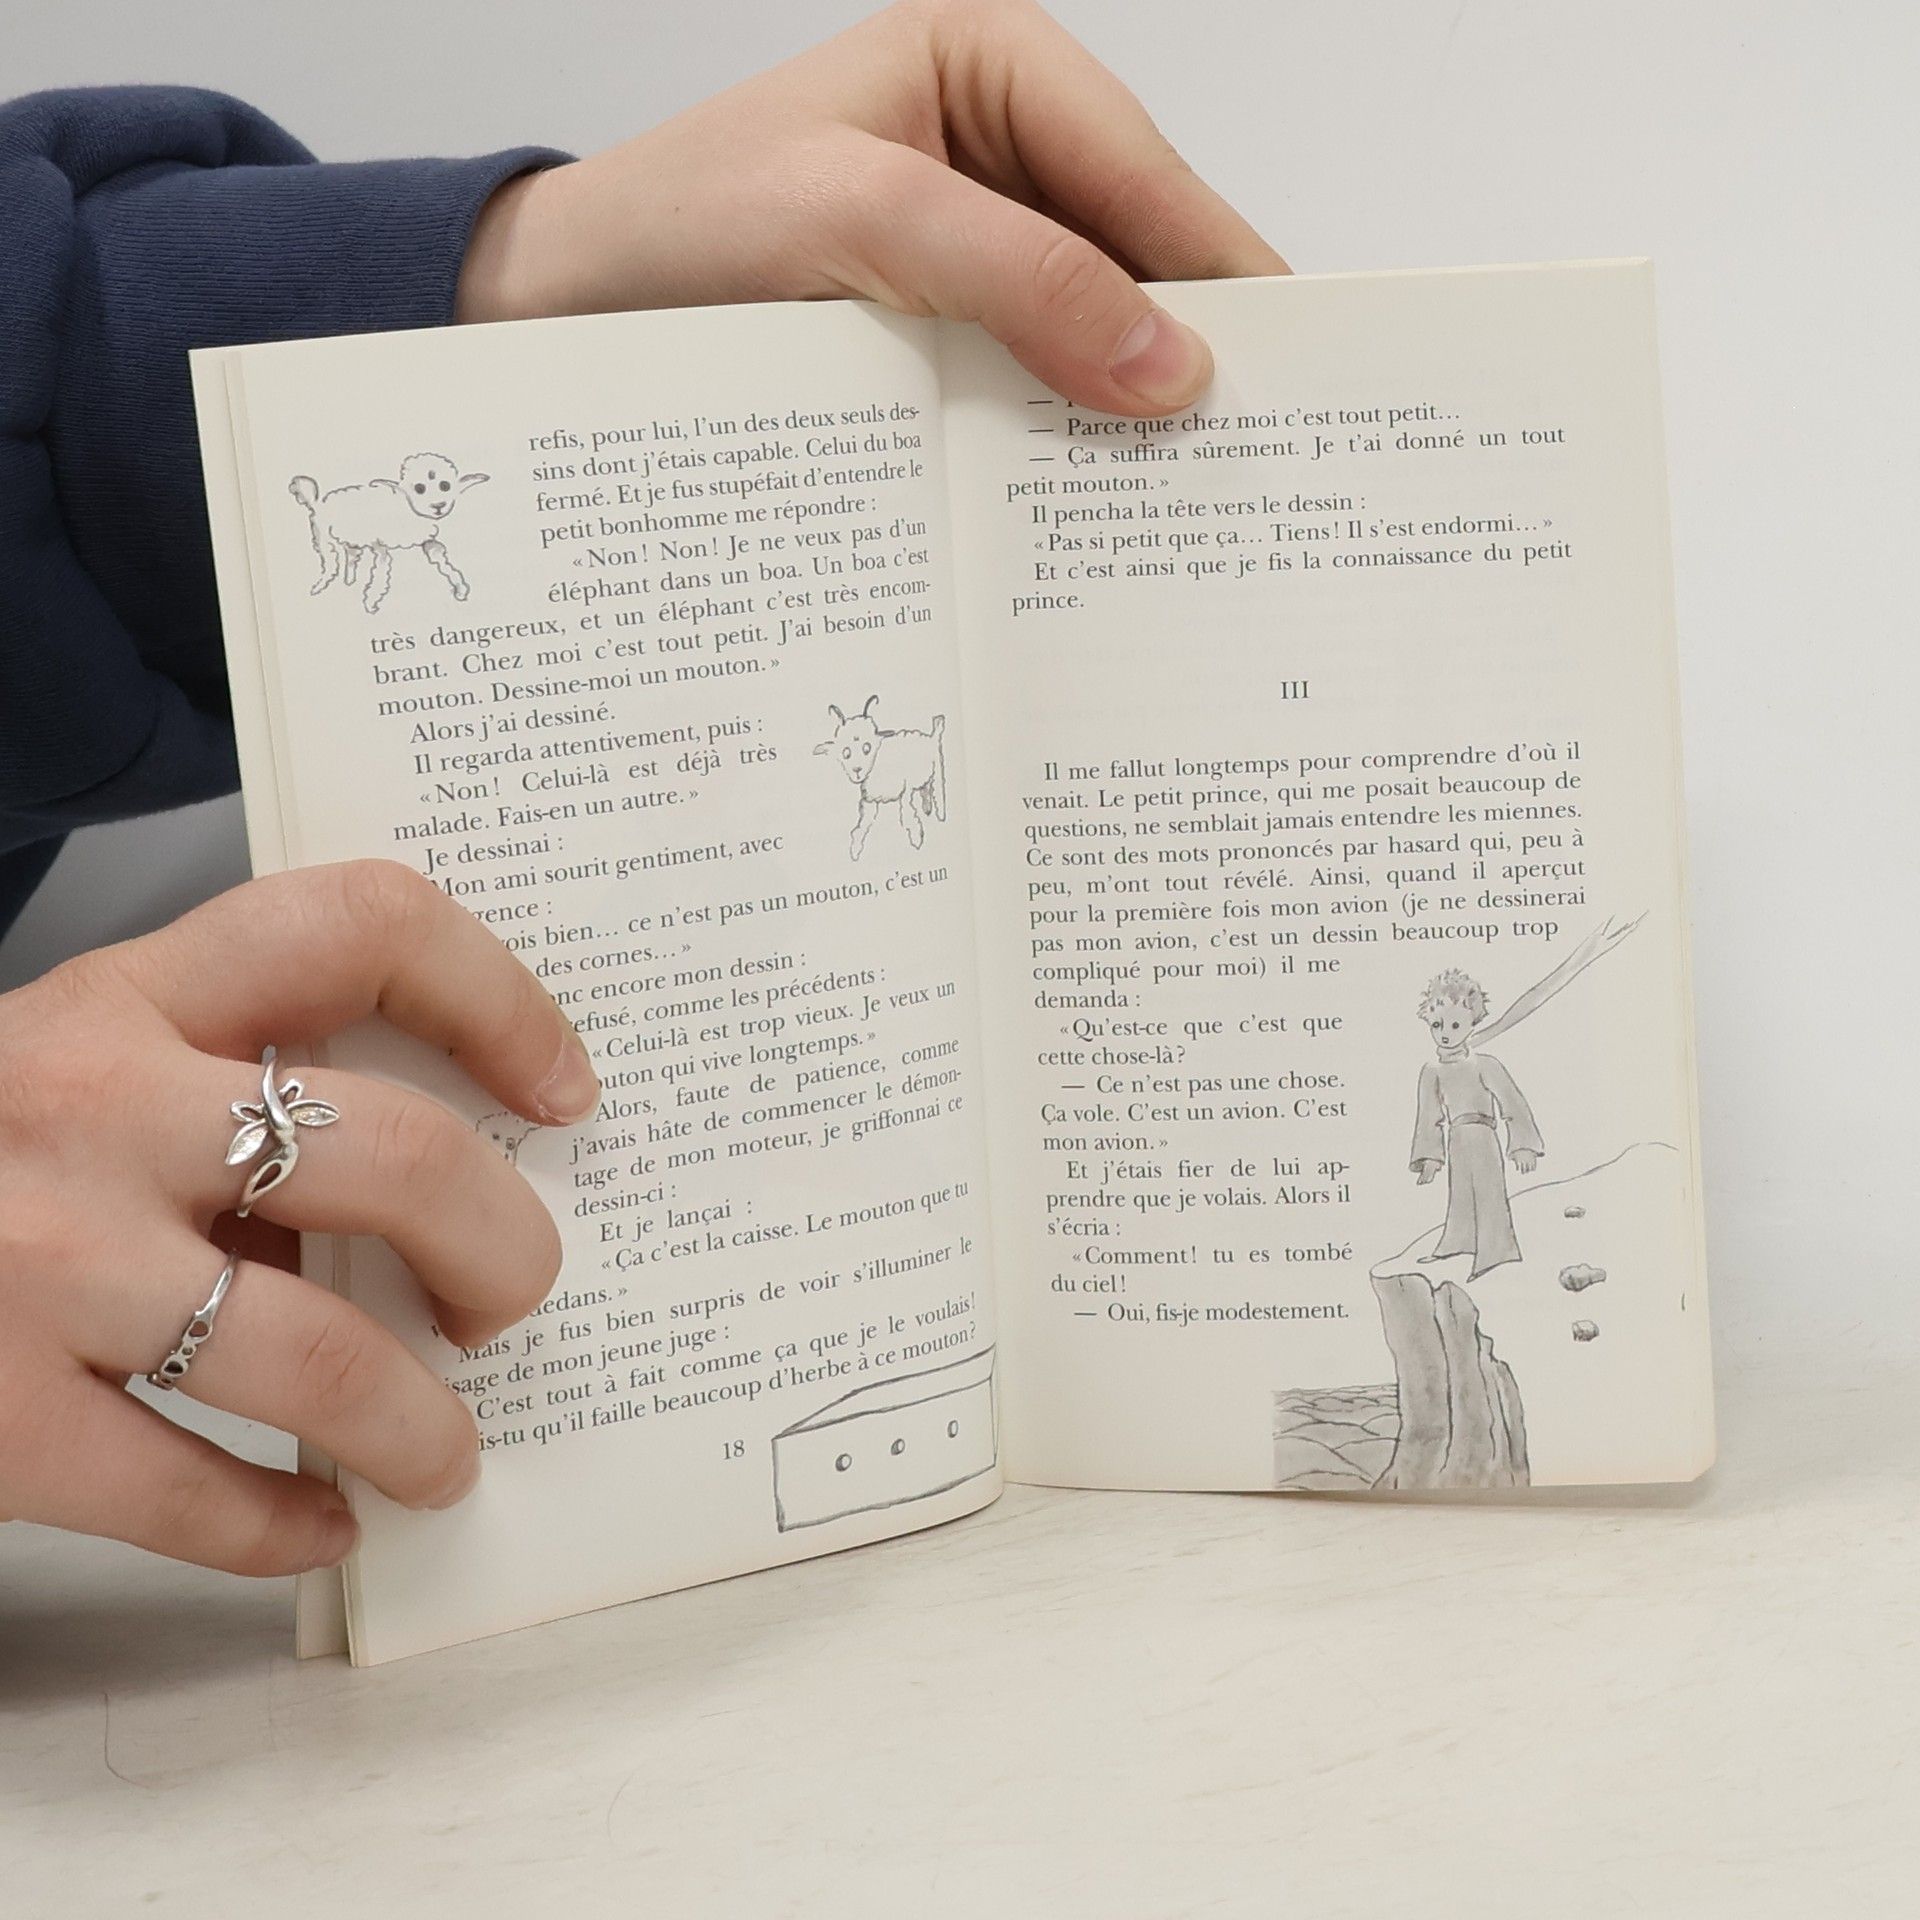 refis, pour lui, l'un des deux seuls des-
sins dont j'étais capable. Celui du boa
fermé. Et je fus stupéfait d'entendre le
petit bonhomme me répondre :
«Non! Non! Je ne veux pas d'un
éléphant dans un boa. Un boa c'est
très dangereux, et un éléphant c'est très encom-
brant. Chez moi c'est tout petit. J'ai besoin d'un
mouton. Dessine-moi un mouton.»
Alors j'ai dessiné.
Il regarda attentivement, puis :
«Non! Celui-là est déjà très
malade. Fais-en un autre.»
Je dessinai :
Mon ami sourit gentiment, avec
gence :
ois bien... ce n'est pas un mouton, c'est un
des cornes...»
nc encore mon dessin :
efusé, comme les précédents :
«Celui-là est trop vieux. Je veux un
outon qui vive longtemps.»
Alors, faute de patience, comme
j'avais hâte de commencer le démon-
tage de mon moteur, je griffonnai ce
dessin-ci :
Et je lançai :
«Ça c'est la caisse. Le mouton que tu
dedans.»
Mais je fus bien surpris de voir s'illuminer le
isage de mon jeune juge :
C'est tout à fait comme ça que je le voulais!
is-tu qu'il faille beaucoup d'herbe à ce mouton?
18
—
— Parce que chez moi c'est tout petit...
— Ça suffira sûrement. Je t'ai donné un tout
petit mouton.»
Il pencha la tête vers le dessin :
«Pas si petit que ça... Tiens! Il s'est endormi...»
Et c'est ainsi que je fis la connaissance du petit
prince.
III
Il me fallut longtemps pour comprendre d'où il
venait. Le petit prince, qui me posait beaucoup de
questions, ne semblait jamais entendre les miennes.
Ce sont des mots prononcés par hasard qui, peu à
peu, m'ont tout révélé. Ainsi, quand il aperçut
pour la première fois mon avion (je ne dessinerai
pas mon avion, c'est un dessin beaucoup trop
compliqué pour moi) il me
demanda :
«Qu'est-ce que c'est que
cette chose-là?
— Ce n'est pas une chose.
Ça vole. C'est un avion. C'est
mon avion.»
Et j'étais fier de lui ap-
prendre que je volais. Alors il
s'écria :
«Comment! tu es tombé
du ciel!
— Oui, fis-je modestement.